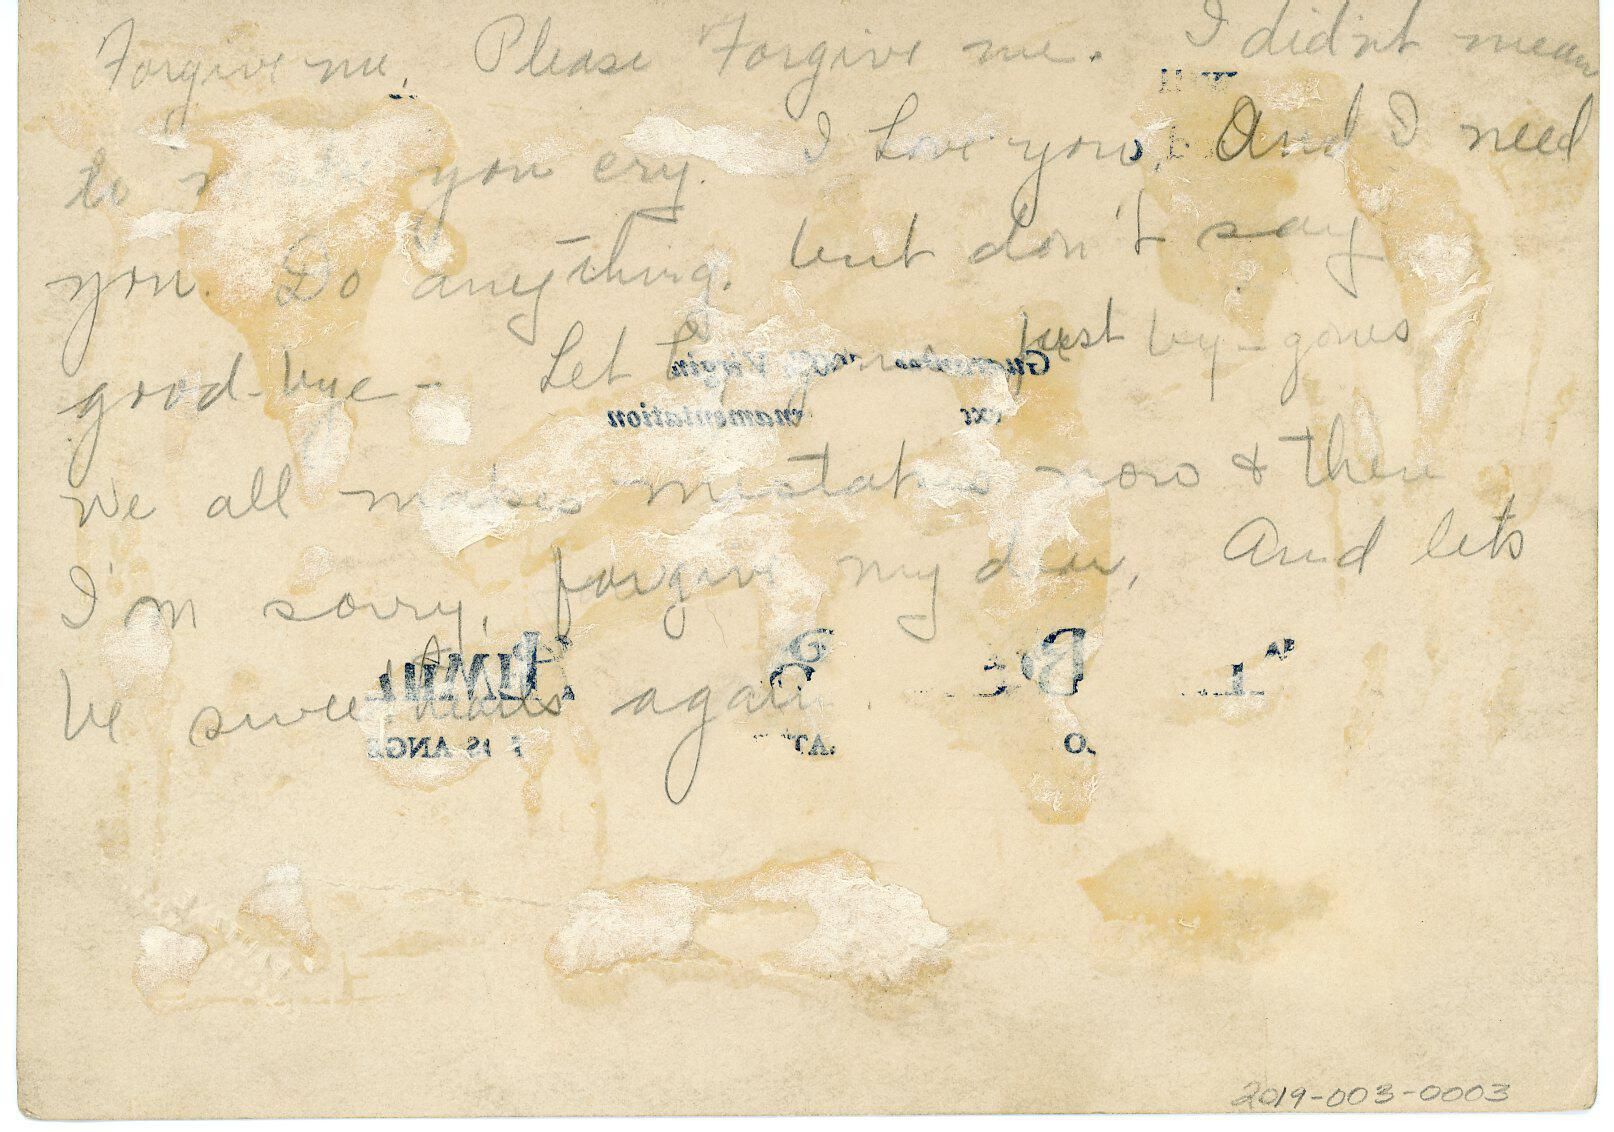 Forgive me. Please Forgive me. I didn't mean
to you cry. I Love you, And I need
you. Do anything, but don't say
good-bye- Let just by-gones
we all makes mistakes now & then
I'm sorry, forgive my dear, And lets
be sweethearts again
2019-003-0003